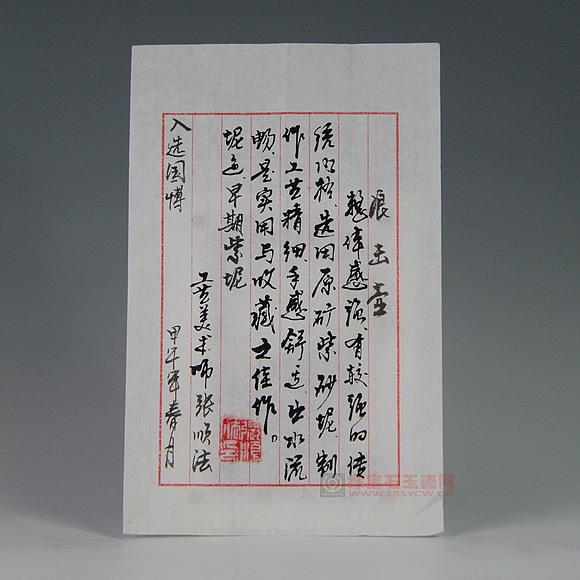 浪击壶
整体感强、有较强的传
统风格、选用原矿紫砂坭、制
作工艺精细、手感舒适、出水流
畅、是实用与收藏之佳作。
坭色、早期紫坭
工艺美术师张顺法
入选国博
甲午年春月
WWW.LBSYCW.CN